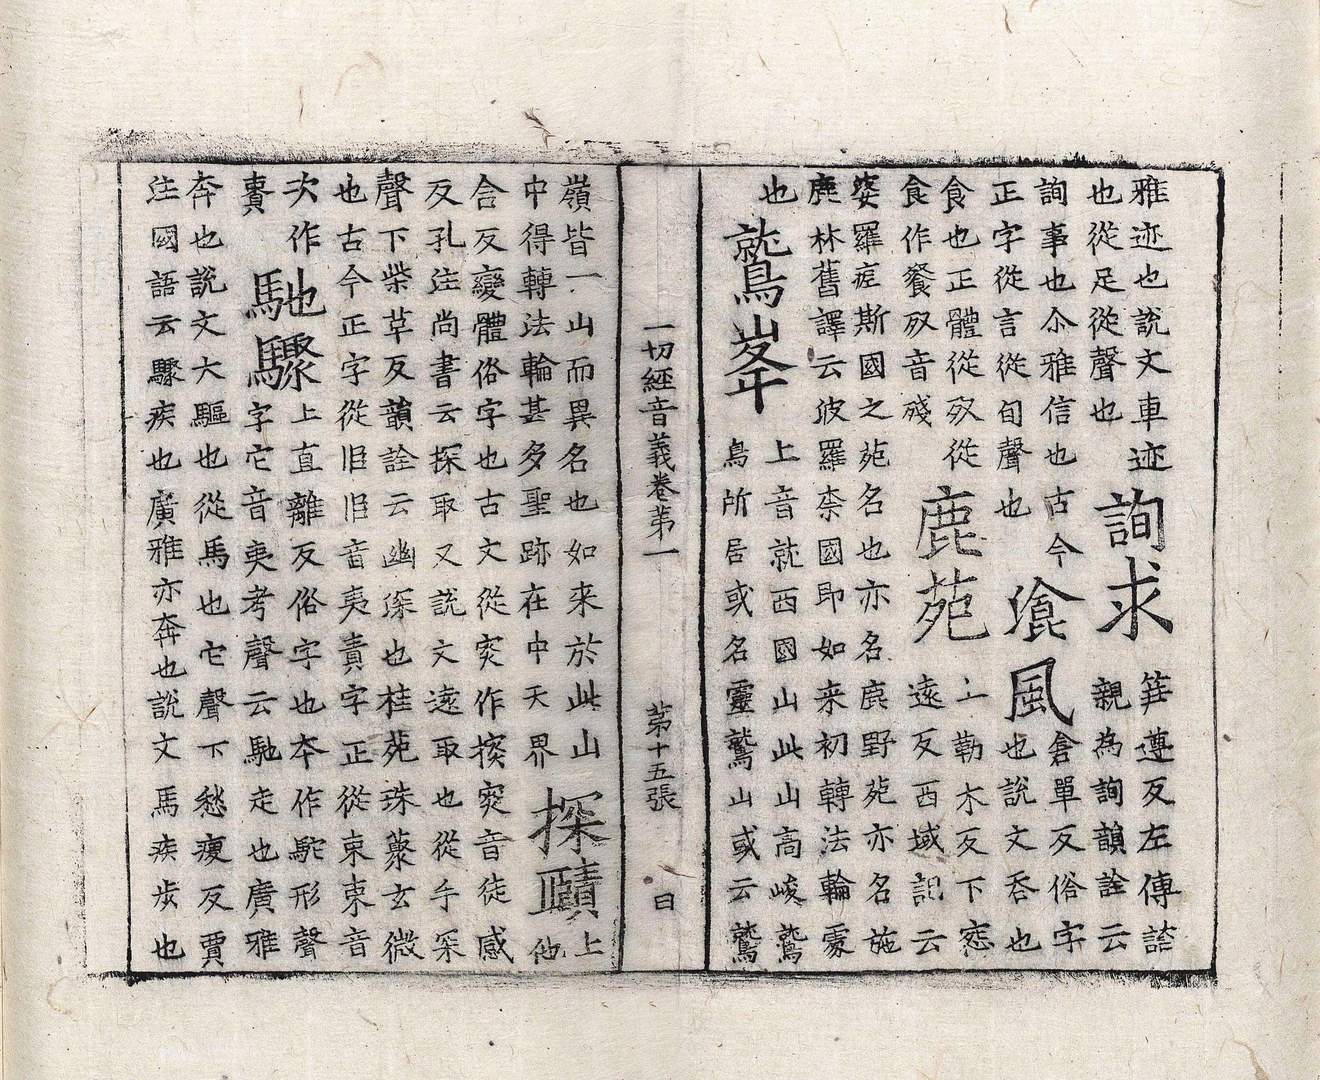 雅迹也說文車迹
也從足從聲也
詢求
筭遵反左傳諮
親為詢韻詮云
詢事也尒雅信也古今
正字從言從旬聲也
飡風
倉單反俗字
也說文吞也
食也正體從𣦼從
食作餐𣦼音殘
鹿苑
上勒木反下𥦗
遠反西域記云
婆羅痆斯國之苑名也亦名鹿野苑亦名施
鹿林舊譯云波羅柰國即如来初轉法輪處
也
鷲峯
上音就西國山此山高峻鷲
鳥所居或名靈鷲山或云鷲
一切經音義卷苐一 苐十五張 曰
嶺皆一山而異名也如来於此山
中得轉法輪甚多聖跡在中天界
探賾
上
他
合反變體俗字也古文從突作揬突音徒感
反孔注尚書云探取又說文遠取也從手罙
聲下柴革反韻詮云幽深也桂苑珠藂玄微
也古今正字從𦣞𦣞音夷責字正從朿朿音
次作
賷
馳驟
上直離反俗字也本作駝形聲
字它音夷考聲云馳走也廣雅
奔也說文大驅也從馬也它聲下愁瘦反賈
注國語云驟疾也廣雅亦奔也說文馬疾步也